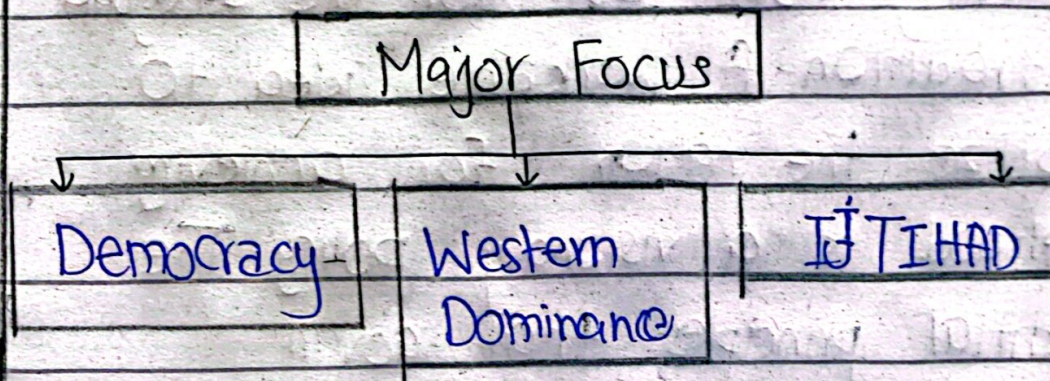 Major Focus
Democracy
Western
Dominance
IJTIHAD